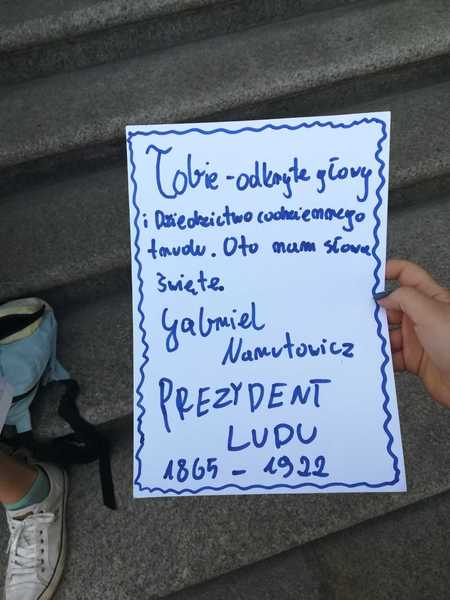 Tobie - odkryte głowy
i Dziedzictwo codziennego
trudu. Oto nam słowa
święte.
Gabriel
Narutowicz
PREZYDENT
LUDU
1865 - 1922